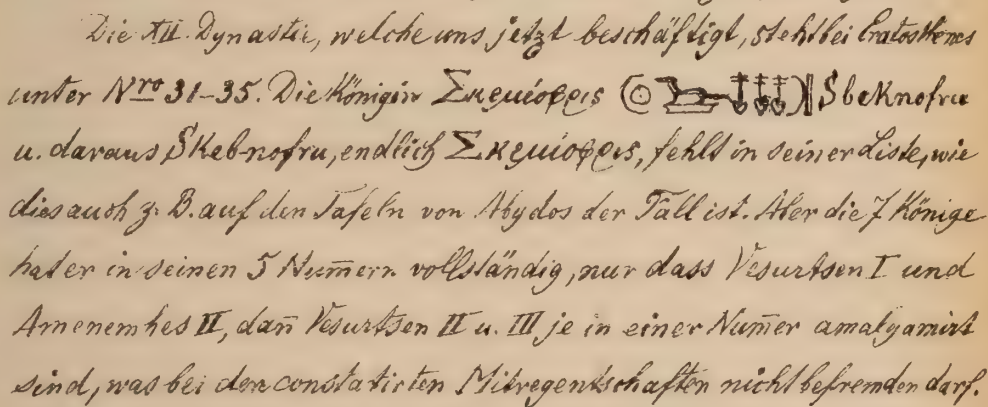 Die XII. Dynastie, welche uns jetzt beschäftigt, steht bei Eratosthenes
unter Nro 31-35. Die Königin Σκεμίοφρις Sbeknofru
u. daraus Skeb-nofru, endlich Σκεμίοφρις, fehlt in seiner Liste, wie
dies auch z. B. auf den Tafeln von Abydos der Fall ist. Aber die 7 Könige
hat er in seinen 5 Num̄ern vollständig, nur dass Vesurtsen I und
Amenemhes II, dan̄ Vesurtsen II u. III je in einer Num̄er amalgamirt
sind, was bei den constatirten Mitregentschaften nicht befremden darf.